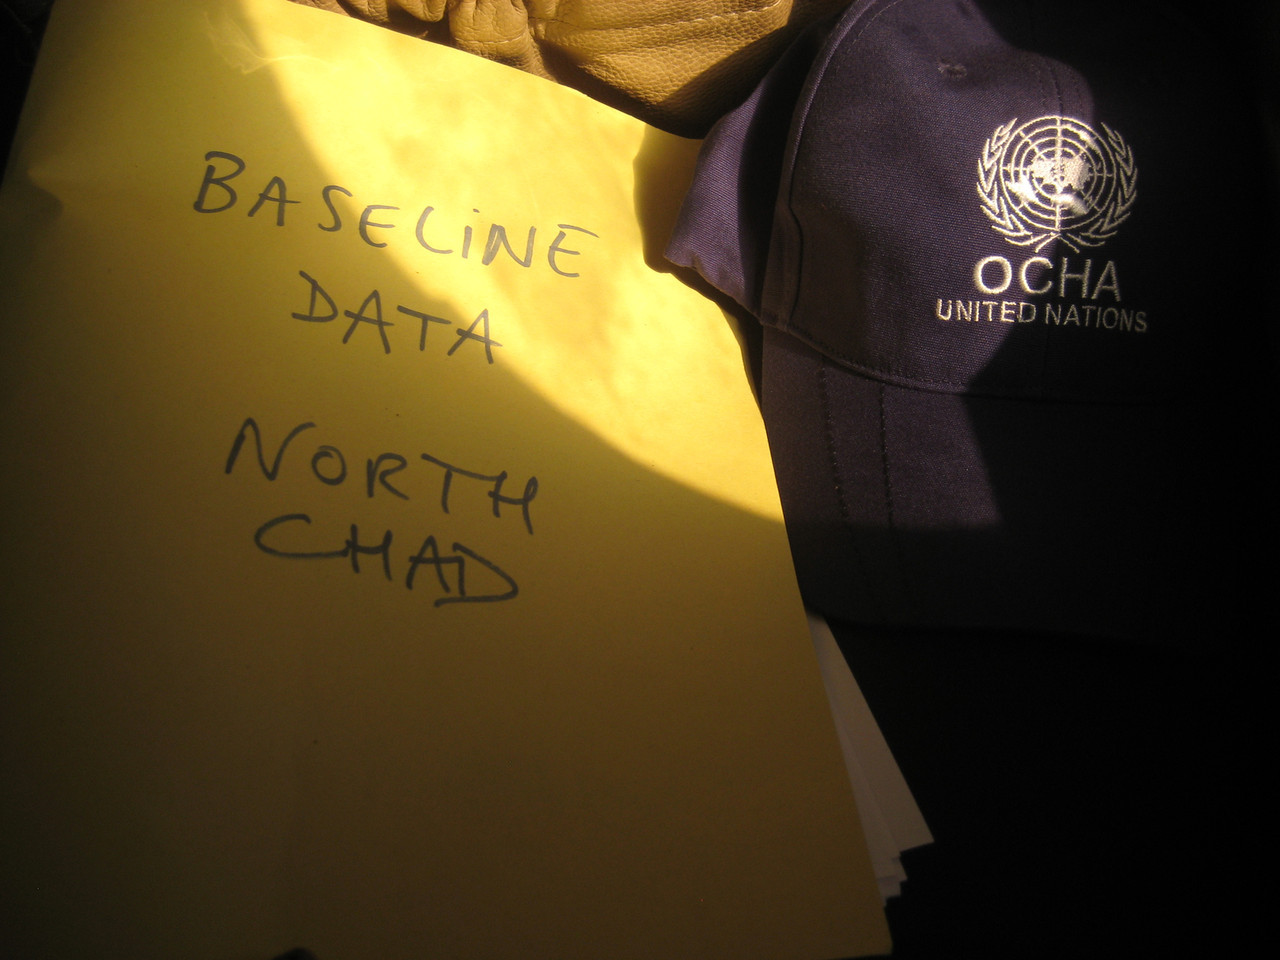 BASELiNE
DATA
NORTH
CHAD
OCHA
UNITED NATIONS